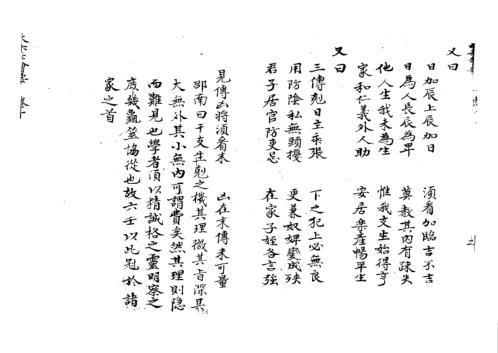 又曰
日加辰上辰加日　須看加臨言不言
日為人長辰為卑　莫教其内有疎失
他人生我未為生　惟我支生始得亨
家和仁義外人助　安居樂產暢平生
又曰
三傳剋日主乖張　下之犯上必無良
用防陰私無頭擾　更兼奴婢變成殃
君子居官防更忌　在家子姪各言強
見傳凶將須看末　凶在末傳未可量
邵南曰干支生剋之機其理微其旨深其
大無外其小無内可謂費矣然其理則隐
而難見也學者須以精誠格之靈明察之
庶幾龜筮協從也故六壬以此冠於諸
家之首